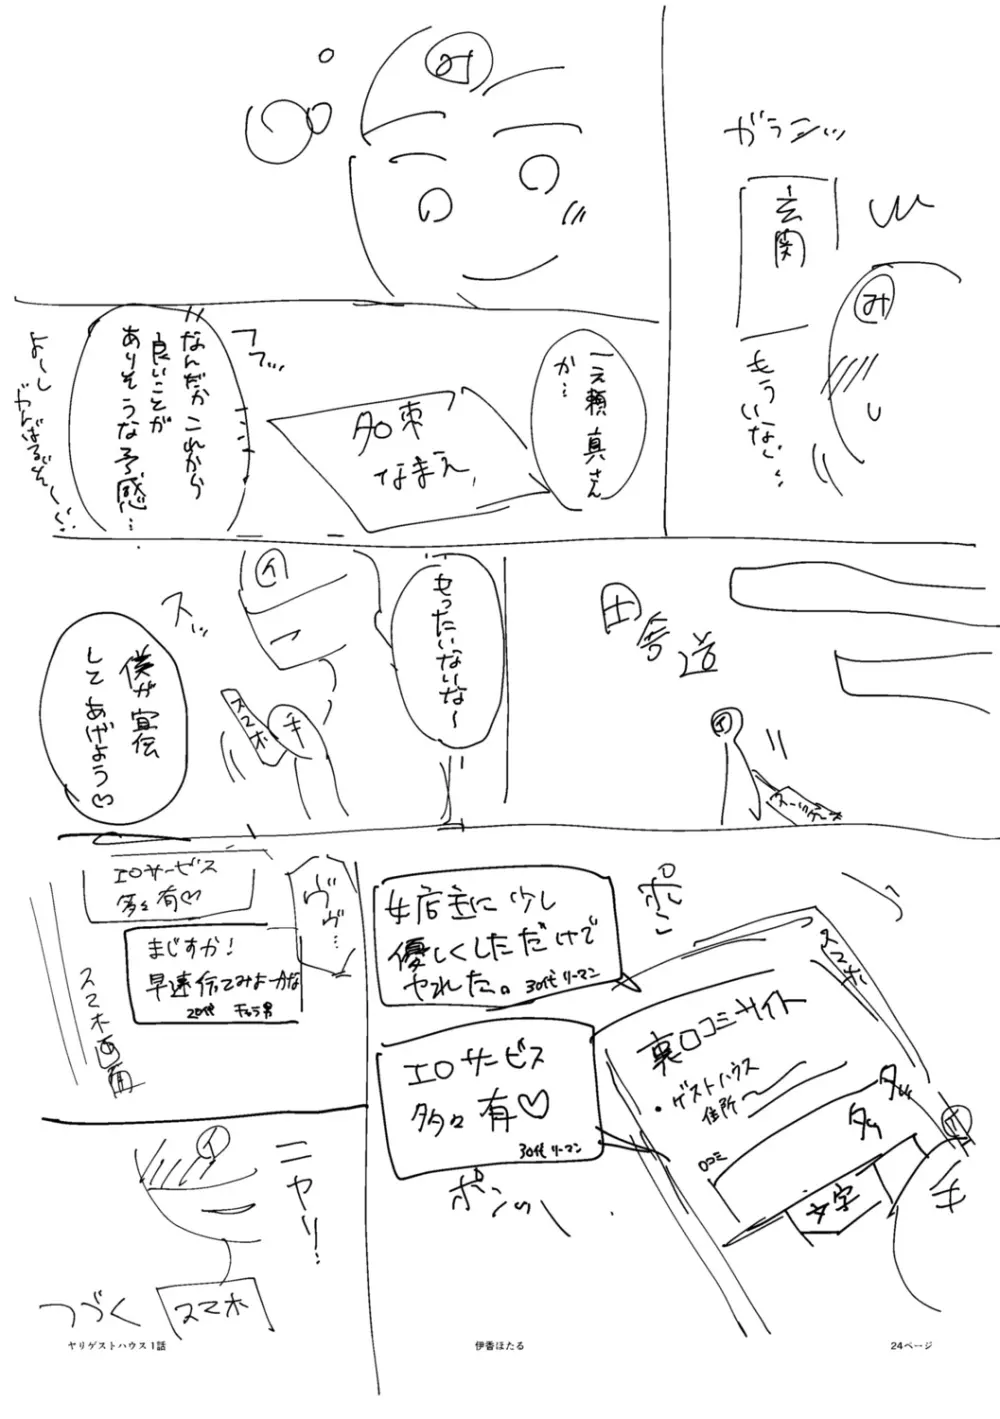 ガラーン
玄関
み
もういない…
み
一ノ頼 真さん
か…
名刺
なまえ
フフ…
なんだか これから
良いことが
ありそうな予感…
よーし
がんばるぞ〜
田舎道
イ
もったいないな〜
イ
スッ
スマホ
手
僕が宣伝
してあげよう♡
ポン
女店主に少し
優しくしただけで
ヤれた。
30代リーマン
スマホ
裏口コミサイト
・ゲストハウス
住所
タッ
タッ
口コミ
文字
イ
手
エロサービス
多々有♡
30代リーマン
ポンッ
ヴヴ…
エロサービス
多々有♡
まじすか!
早速行てみよーかな
20代 チャラ男
スマホ画面
イ
ニヤリ!
スマホ
つづく
ヤリゲストハウス1話
伊香ほたる
24ページ